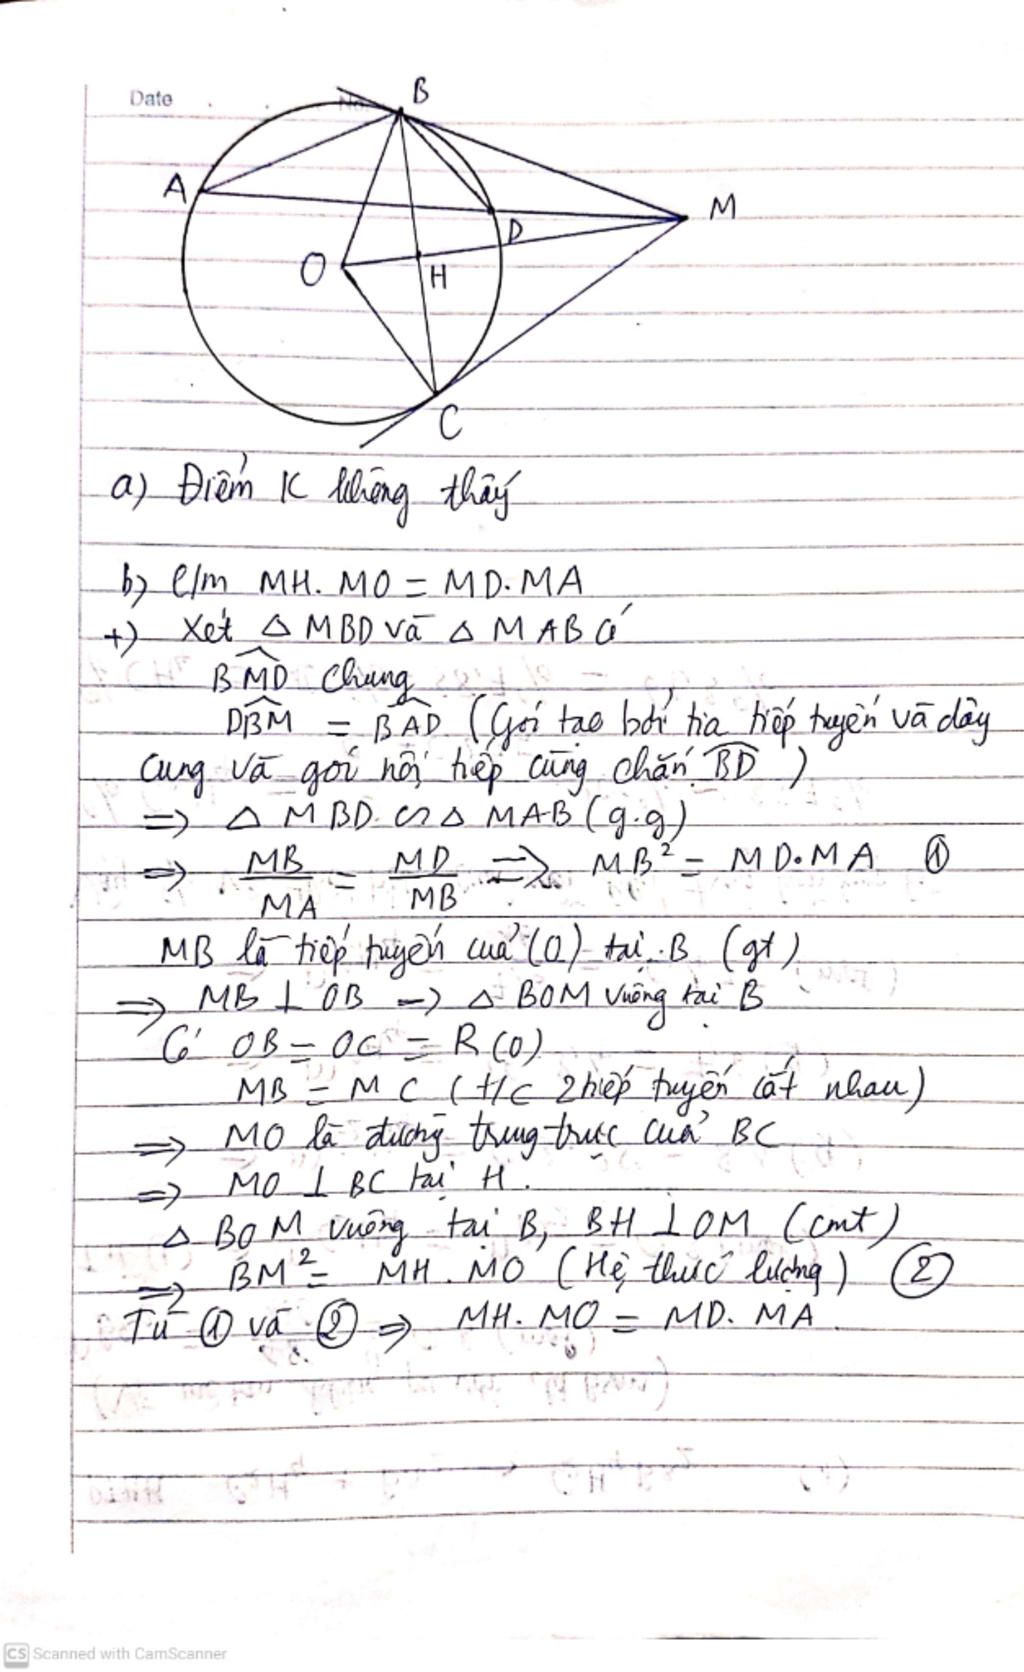 Date No.
B
A
M
D
O
H
C
a) Điểm K không thấy
b) C/m MH. MO = MD. MA
+) Xét △ MBD và △ MAB có
BMD chung
DBM = BAD (Góc tạo bởi tia tiếp tuyến và dây
cung và góc nội tiếp cùng chắn BD)
=> △ MBD ∽ △ MAB (g.g)
=> MB/MA = MD/MB => MB² = MD.MA ①
MB là tiếp tuyến của (O) tại B (gt)
=> MB ⊥ OB -> △ BOM vuông tại B
Có OB = OC = R(O)
MB = MC (t/c 2 tiếp tuyến cắt nhau)
=> MO là đường trung trực của BC
=> MO ⊥ BC tại H.
△ BOM vuông tại B, BH ⊥ OM (cmt)
=> BM² = MH. MO (Hệ thức lượng) ②
Từ ① và ② => MH. MO = MD. MA
CS Scanned with CamScanner